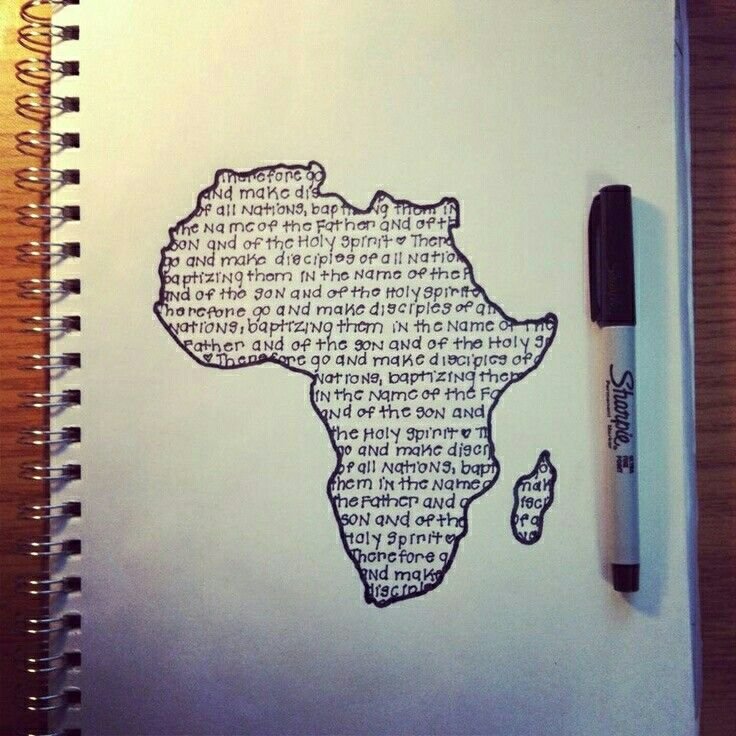 Therefore go
and make dis
of all Nations, baptizing them in
the Name of the Father and of th
son and of the Holy spirit ♥ There
go and make disciples of all Nation
baptizing them in the Name of the F
and of the son and of the Holy spirit
Therefore go and make disciples of all
Nations, baptizing them in the Name of the
Father and of the son and of the Holy s
♥ Therefore go and make disciples of a
Nations, baptizing them
in the Name of the Fa
and of the son and
the Holy spirit ♥ T
go and make discip
of all Nations, bapt
them in the Name o
the Father and o
son and of the
Holy spirit ♥
Therefore go
and make
disciple
go
make
disci
of a
Sharpie
Permanent Marker
ULTRA FINE POINT